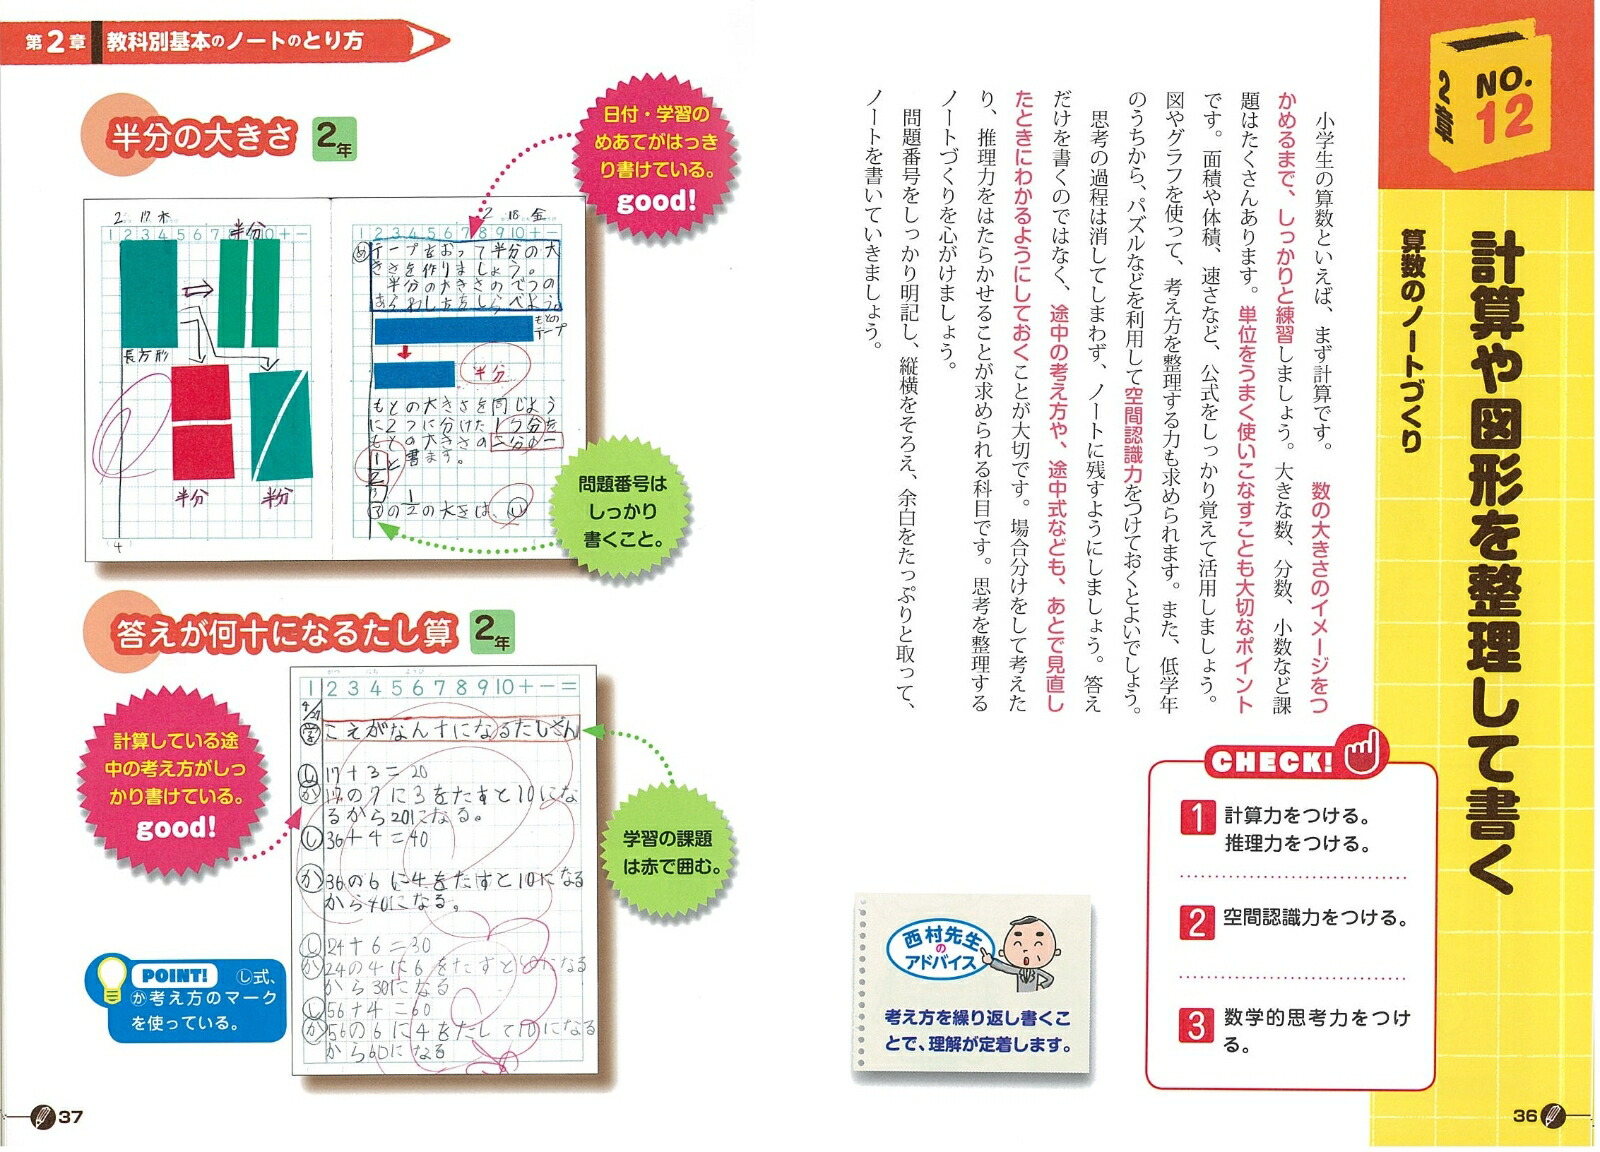 NO.
12
2章
計算や図形を整理して書く
算数のノートづくり
小学生の算数といえば、まず計算です。 数の大きさのイメージをつ
かめるまで、しっかりと練習しましょう。大きな数、分数、小数など課
題はたくさんあります。単位をうまく使いこなすことも大切なポイント
です。面積や体積、速さなど、公式をしっかり覚えて活用しましょう。
図やグラフを使って、考え方を整理する力も求められます。また、低学年
のうちから、パズルなどを利用して空間認識力をつけておくとよいでしょう。
思考の過程は消してしまわず、ノートに残すようにしましょう。答え
だけを書くのではなく、途中の考え方や、途中式なども、あとで見直し
たときにわかるようにしておくことが大切です。場合分けをして考えた
り、推理力をはたらかせることが求められる科目です。思考を整理する
ノートづくりを心がけましょう。
問題番号をしっかり明記し、縦横をそろえ、余白をたっぷりと取って、
ノートを書いていきましょう。
CHECK!
1 計算力をつける。
推理力をつける。
2 空間認識力をつける。
3 数学的思考力をつけ
る。
西村先生
の
アドバイス
考え方を繰り返し書くこ
とで、理解が定着します。
36
第2章 教科別基本のノートのとり方
半分の大きさ 2年
日付・学習の
めあてがはっき
り書けている。
good!
2 17 木
1 2 3 4 5 6 7 8 9 10 + −
半分
長方形
半分
半分
(4)
2 18 金
1 2 3 4 5 6 7 8 9 10 + −
め テープをおって半分の大
きさを作りましょう。
半分の大きさの
あらわし方をしらべよう。
もとの
テープ
半分
もとの大きさを同じよう
に2つに分けた1つ分を
もとの大きさの二分の一
1/2 と書きます。
3
③の1/2の大きさは、い
問題番号は
しっかり
書くこと。
答えが何十になるたし算 2年
計算している途
中の考え方がしっ
かり書けている。
good!
1 2 3 4 5 6 7 8 9 10 + − =
4/27
学 こえがなん十になるたしざん
し 17+3=20
か 17の7に3をたすと10にな
るから20になる。
し 36+4=40
か 36の6に4をたすと10になる
から40になる。
し 24+6=30
か 24の4に6をたすと10になる
から30になる
し 56+4=60
か 56の6に4をたして10になる
から60になる
学習の課題
は赤で囲む。
POINT! し式、
か考え方のマーク
を使っている。
37